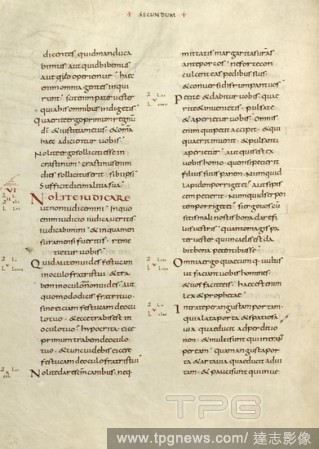 SECUNDUM
dicentes, quid manduca
bimus aut quid bibemus
aut quo operiemur haec
enim omnia gentes inqui
runt scit enim pater uester
quia his omnibus indigetis
Querite ergo primum regnū
di & iustitiam eius & omnia
haec adicientur uobis
Nolite ergo solliciti esse in
crastinum crastinus enim
dies sollicitus erit sibi ipsi
Sufficit diei malitia sua
VI
NOLITE IUDICARE
ut non iudicemini in quo
enim iudicio iudicaueritis
iudicabimini & in qua men
sura mensi fueritis reme
tietur uobis
Quid autem uides festucam
in oculo fratris tui & tra
bem in oculo tuo non uides aut
quomodo dicis fratri tuo
sine eiciam festucam de oculo
tuo & ecce trabis est in
oculo tuo hypocrita eice
primum trabem de oculo
tuo & tunc uidebis eicere
festucam de oculo fratris tui
Nolite dare scm canibus neq.
mittatis margaritas uras
ante porcos ne forte con
culcent eas pedibus suis
& conuersi disrumpant uos
Petite & dabitur uobis que
rite & inuenietis pulsate
& aperietur uobis omnis
enim qui petit accipit & qui
querit inuenit & pulsanti
aperietur aut quis est ex
uobis homo quem si petierit
filius suus panem numquid
lapidem porriget ei aut si piscem
petierit numquid serpentem
porriget ei si ergo uos cū
sitis mali nostis bona dare filiis
uestris quanto magis pa
ter uester qui in caelis est da
bit bona petentibus se
Omnia ergo quaecumq. uultis
ut faciant uobis homines
& uos facite eis haec est enim
lex & prophetae
Intrate per angustam portam
quia lata porta & spatiosa
uia quae ducit ad perditio
nem & multi sunt qui intrant
per eam quam angusta por
ta & arta uia quae ducit ad ui
tam & pauci sunt qui inue
TPG
www.tpgnews.com / 達志影像